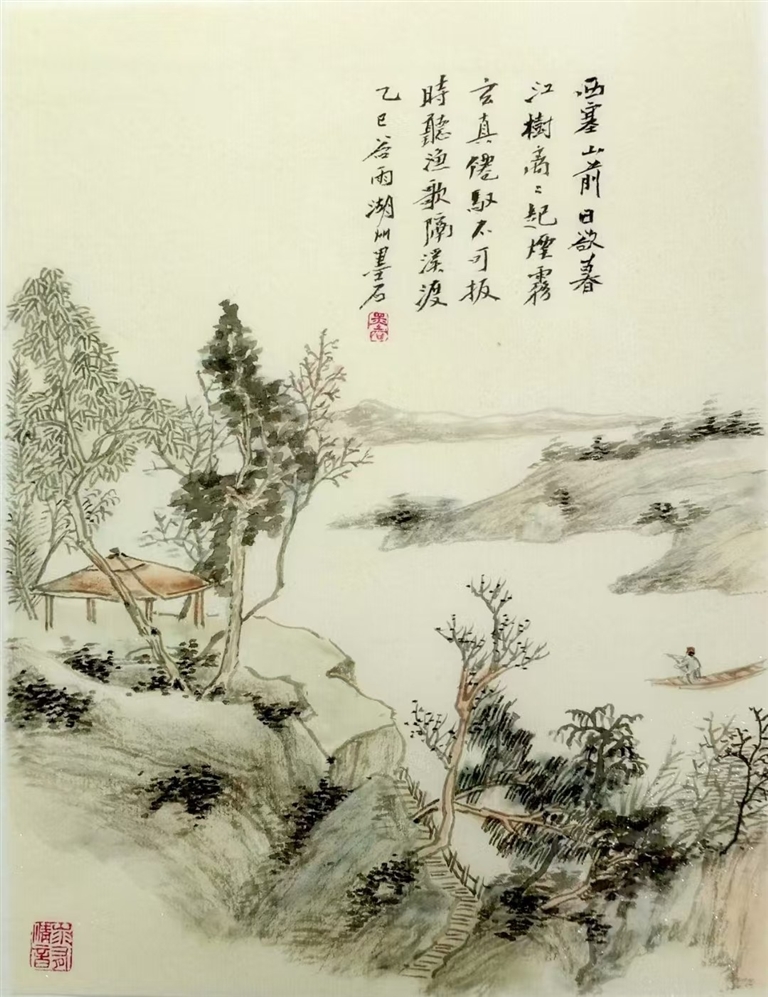 西塞山前日欲暮
江樹离々起煙霧
玄真僊馭不可扳
時聽渔歌隔溪渡
乙巳谷雨湖州墨石